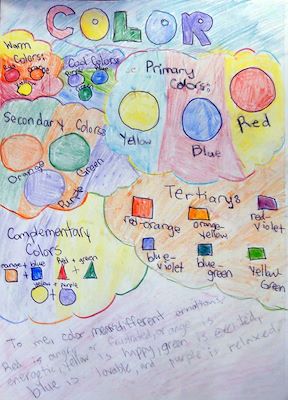 COLOR
Warm
Colors:
red
orange
yellow
Cool Colors
purple
blue
green
Primary
Colors:
Yellow
Blue
Red
Secondary Colors:
Orange
Purple
Green
Tertiary:
red-orange
orange-
yellow
red-
violet
blue-
violet
blue
green
Yellow
Green
Complementary
Colors
orange + blue
Red + green
+
+
yellow + purple
+
To me, color means different emotions.
Red is angry or frustrated, orange is
energetic, yellow is happy, green is excitedly,
blue is lovable, and purple is relaxed.